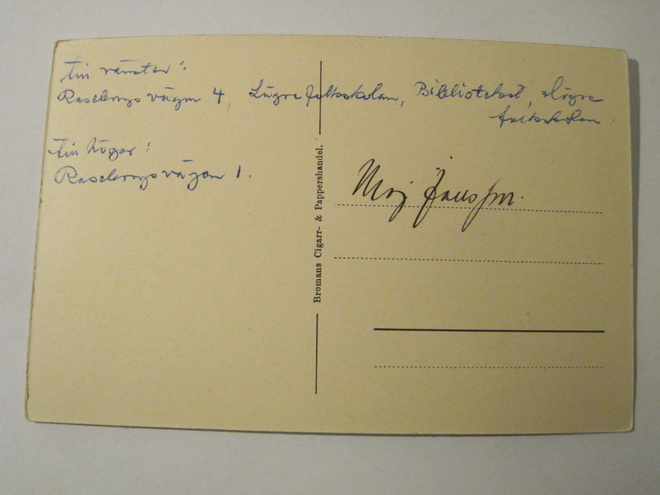 Till vänster:
Raseborgsvägen 4, Lägre folkskolan, Biblioteket, Högre
folkskolan
Till höger:
Raseborgsvägen 1.
Bromans Cigarr- & Pappershandel.
Maj Jansson.